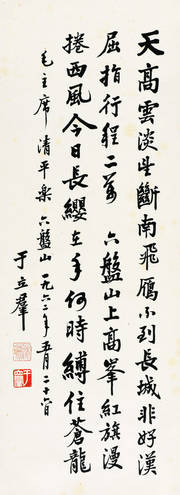 天高雲淡望斷南飛雁不到長城非好漢
屈指行程二萬 六盤山上高峯紅旗漫
捲西風今日長纓在手何時縛住蒼龍
毛主席清平樂 六盤山 一九六二年五月二十六日
于立羣